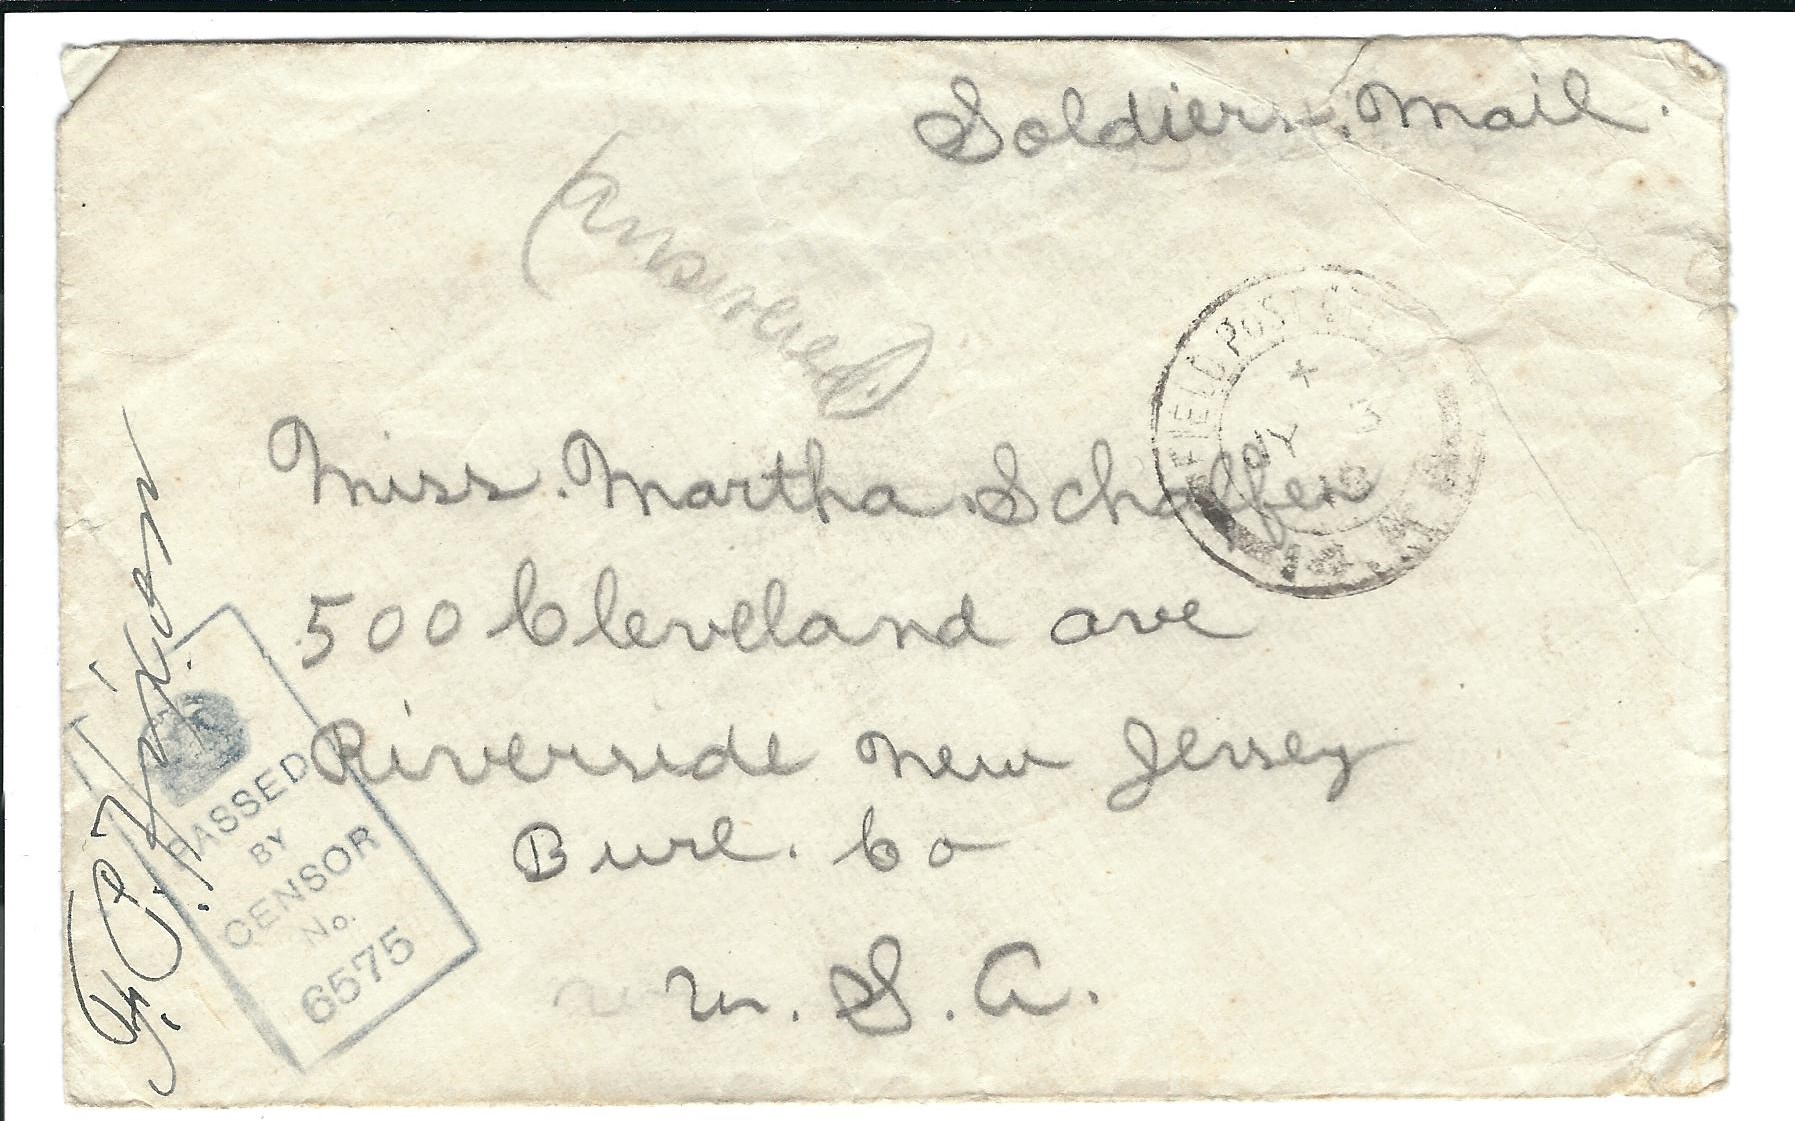 Soldiers Mail.
(answered.)
FIELD POST OFFICE
JY 3
18
Miss. Martha Schaffer
500 Cleveland ave
Riverside New Jersey
Burl. Co
U. S. A.
PASSED
BY
CENSOR
No.
6575